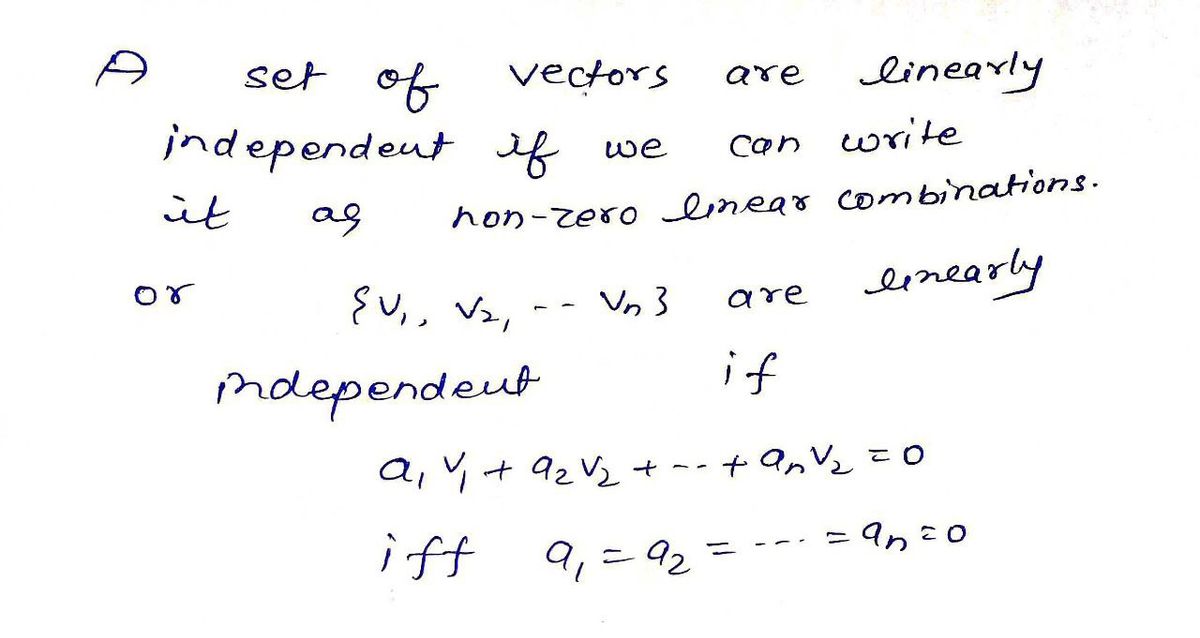 A set of vectors are linearly
independent if we can write
it as non-zero linear combinations.
or {V₁, V₂, -- Vn} are linearly
independent if
a₁V₁ + a₂V₂ + --- + anV₂ = 0
iff a₁ = a₂ = ---- = an = 0